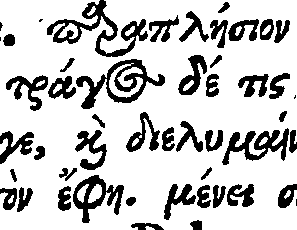 . παραπλήσιον
τράγος δέ τις
γε, καὶ διελυμαίν
ὸν ἔφη. μένει σ